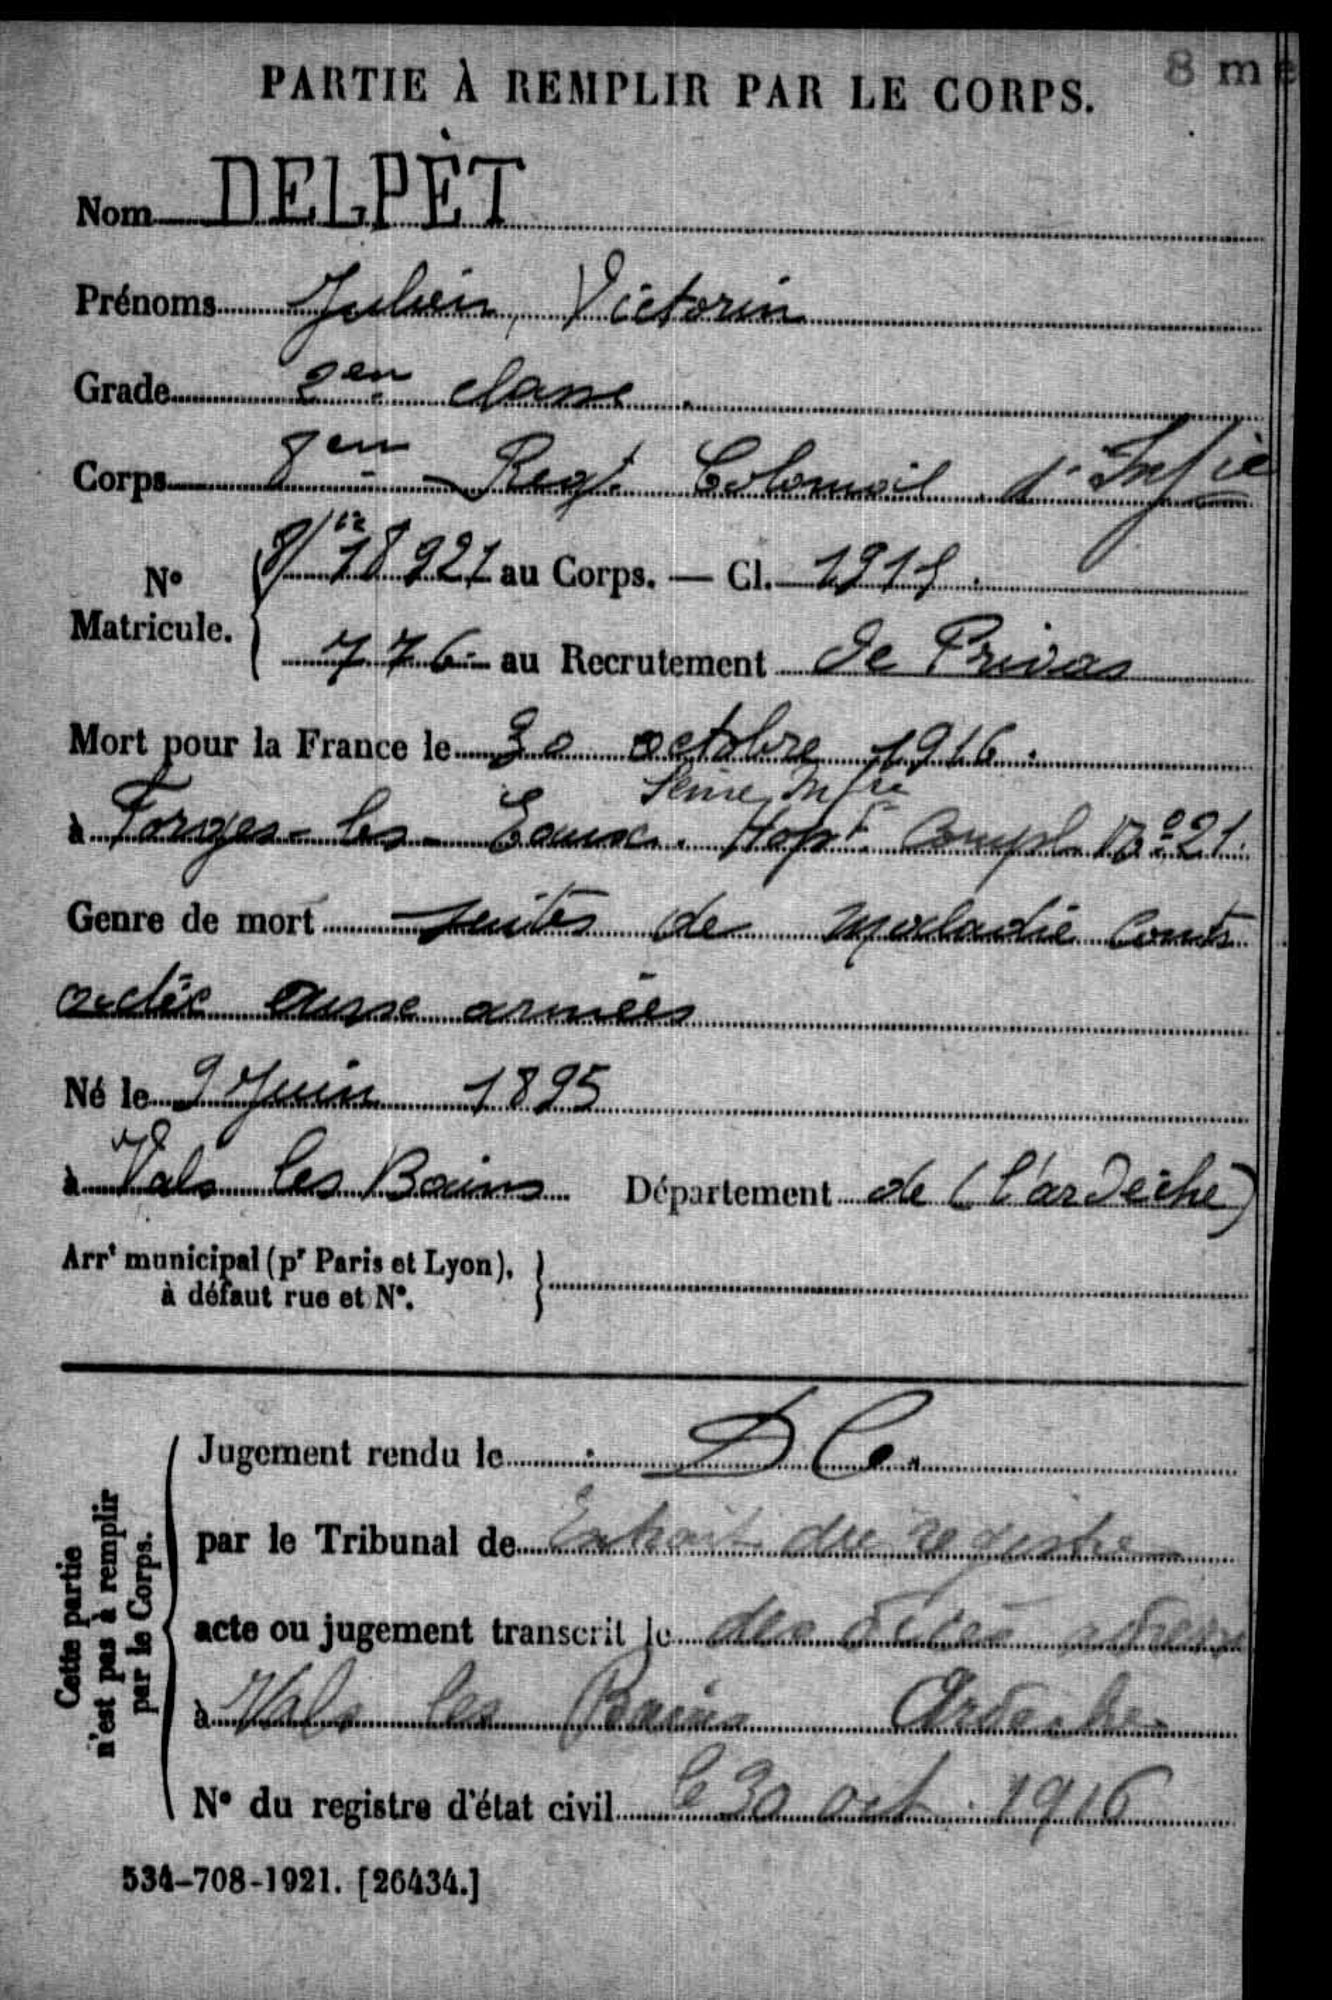 8 me
PARTIE À REMPLIR PAR LE CORPS.
Nom DELPÈT
Prénoms Julien, Victorin
Grade 2en classe.
Corps 8en Regt Colonial d'Infie
8/ 18921 au Corps. — Cl. 1915.
N° Matricule.
776 au Recrutement de Privas
Mort pour la France le 30 octobre 1916.
Seine Infre
à Forges-les-Eaux. Hopt. Compl. N° 21.
Genre de mort suites de maladie contr
actée armées
Né le 9 Juin 1895
à Vals les Bains Département de (l'ardèche)
Arrt municipal (pr Paris et Lyon),
à défaut rue et N°.
Cette partie
n'est pas à remplir
par le Corps.
Jugement rendu le D C.
par le Tribunal de Extrait du registre
acte ou jugement transcrit le des décès
à Vals les Bains Ardèche
N° du registre d'état civil le 30 oct. 1916
534-708-1921. [26434.]